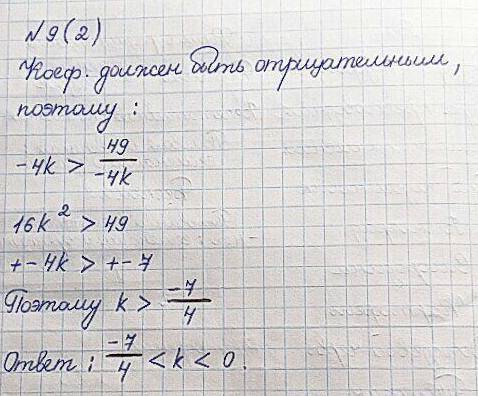 N9(2)
Коеф. должен быть отрицательным,
поэтому :
-4k > 49/-4k
16k² > 49
+-4k > +-7
Поэтому k > -7/4
Ответ : -7/4 < k < 0.